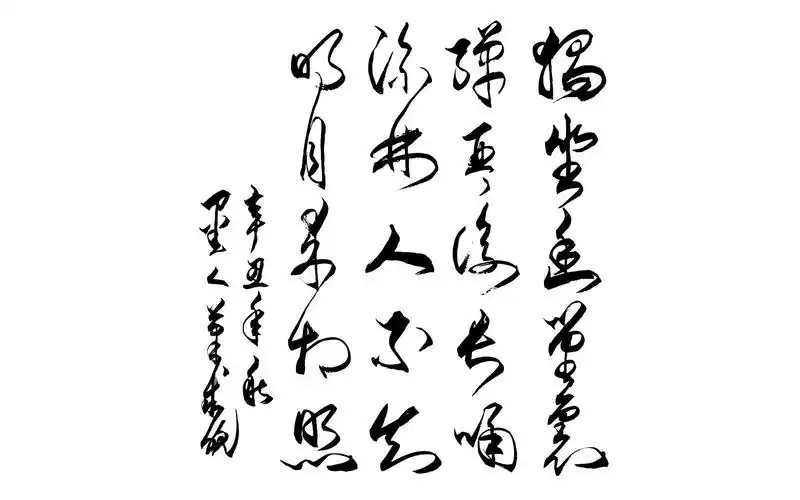 獨坐幽篁裏
彈琴復長嘯
深林人不知
明月來相照
辛丑年秋
墨人